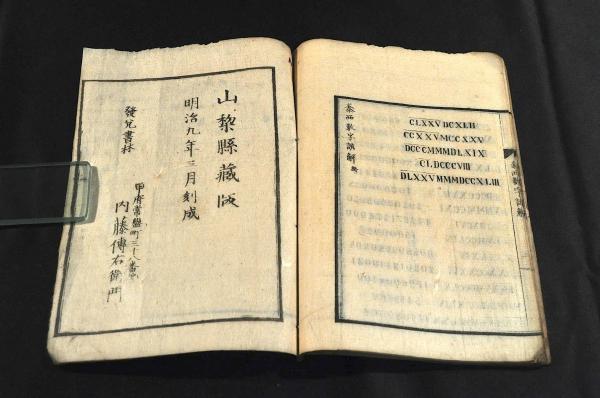 泰西數字
CLXXVDCXLII
CCXXVMCCXXV
DCCCMMMDLXIX
CLDCCCVIII
DLXXVMMMDCCXLIII
山黎縣藏版
明治九年三月刻成
發兌書林
甲府常盤町三十八番
内藤傳右衛門